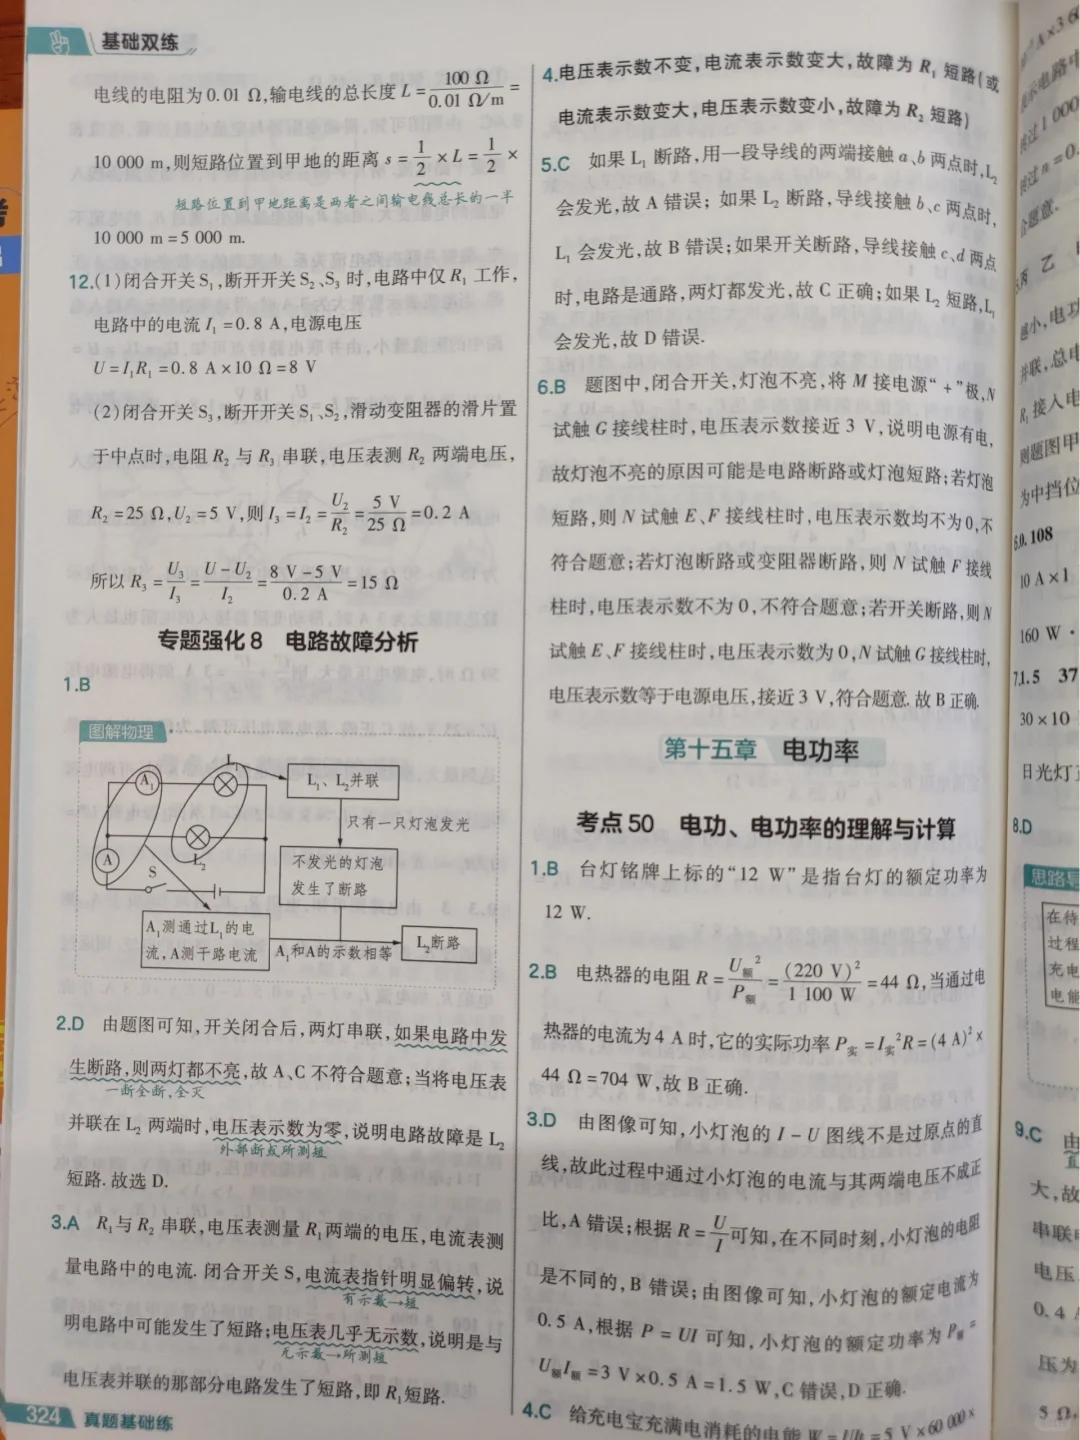 基础双练
电线的电阻为0.01 Ω,输电线的总长度 L = 100 Ω / 0.01 Ω/m =
10 000 m,则短路位置到甲地的距离 s = 1/2 × L = 1/2 ×
短路位置到甲地距离是两者之间输电线总长的一半
10 000 m = 5 000 m.
12.(1)闭合开关 S₁,断开开关 S₂、S₃ 时,电路中仅 R₁ 工作,
电路中的电流 I₁ = 0.8 A,电源电压
U = I₁R₁ = 0.8 A × 10 Ω = 8 V
(2)闭合开关 S₃,断开开关 S₁、S₂,滑动变阻器的滑片置
于中点时,电阻 R₂ 与 R₃ 串联,电压表测 R₂ 两端电压,
R₂ = 25 Ω,U₂ = 5 V,则 I₃ = I₂ = U₂/R₂ = 5 V/25 Ω = 0.2 A
所以 R₃ = U₃/I₃ = (U − U₂)/I₂ = (8 V − 5 V)/0.2 A = 15 Ω
专题强化 8 电路故障分析
1.B
图解物理
A₁
L₁
A
L₂
S
L₁、L₂并联
只有一只灯泡发光
不发光的灯泡
发生了断路
A₁测通过L₁的电
流,A测干路电流
A₁和A的示数相等
L₂断路
2.D 由题图可知,开关闭合后,两灯串联,如果电路中发
生断路,则两灯都不亮,故 A、C 不符合题意;当将电压表
一断全断,全灭
并联在 L₂ 两端时,电压表示数为零,说明电路故障是 L₂
外部断点所测短
短路.故选 D.
3.A R₁与 R₂ 串联,电压表测量 R₁两端的电压,电流表测
量电路中的电流.闭合开关 S,电流表指针明显偏转,说
有示数→短
明电路中可能发生了短路;电压表几乎无示数,说明是与
无示数→所测短
电压表并联的那部分电路发生了短路,即 R₁短路.
324 真题基础练
4.电压表示数不变,电流表示数变大,故障为 R₁ 短路(或
电流表示数变大,电压表示数变小,故障为 R₂ 短路)
5.C 如果 L₁ 断路,用一段导线的两端接触 a、b 两点时,L₂
会发光,故 A 错误;如果 L₂ 断路,导线接触 b、c 两点时,
L₁ 会发光,故 B 错误;如果开关断路,导线接触 c、d 两点
时,电路是通路,两灯都发光,故 C 正确;如果 L₂ 短路,L₁
会发光,故 D 错误.
6.B 题图中,闭合开关,灯泡不亮,将 M 接电源“+”极,N
试触 G 接线柱时,电压表示数接近 3 V,说明电源有电,
故灯泡不亮的原因可能是电路断路或灯泡短路;若灯泡
短路,则 N 试触 E、F 接线柱时,电压表示数均不为 0,不
符合题意;若灯泡断路或变阻器断路,则 N 试触 F 接线
柱时,电压表示数不为 0,不符合题意;若开关断路,则 N
试触 E、F 接线柱时,电压表示数为 0,N 试触 G 接线柱时,
电压表示数等于电源电压,接近 3 V,符合题意.故 B 正确.
第十五章 电功率
考点 50 电功、电功率的理解与计算
1.B 台灯铭牌上标的“12 W”是指台灯的额定功率为
12 W.
2.B 电热器的电阻 R = U额²/P额 = (220 V)²/1 100 W = 44 Ω,当通过电
热器的电流为 4 A 时,它的实际功率 P实 = I实²R = (4 A)² ×
44 Ω = 704 W,故 B 正确.
3.D 由图像可知,小灯泡的 I − U 图线不是过原点的直
线,故此过程中通过小灯泡的电流与其两端电压不成正
比,A 错误;根据 R = U/I 可知,在不同时刻,小灯泡的电阻
是不同的,B 错误;由图像可知,小灯泡的额定电流为
0.5 A,根据 P = UI 可知,小灯泡的额定功率为 P额 =
U额I额 = 3 V × 0.5 A = 1.5 W,C 错误,D 正确.
4.C 给充电宝充满电消耗的电能 W = UIt = 5 V × 60 000 ×
乙
越小,电功
并联,总电
R₁ 接入电
则题图甲
为中挡位
0.108
10 A × 1
160 W ·
7.1.5 37
30 × 10
日光灯
8.D
思路导
在待
过程
充电
电能
9.C 由
大,故
串联
电压
0.4
压为
5 Ω,